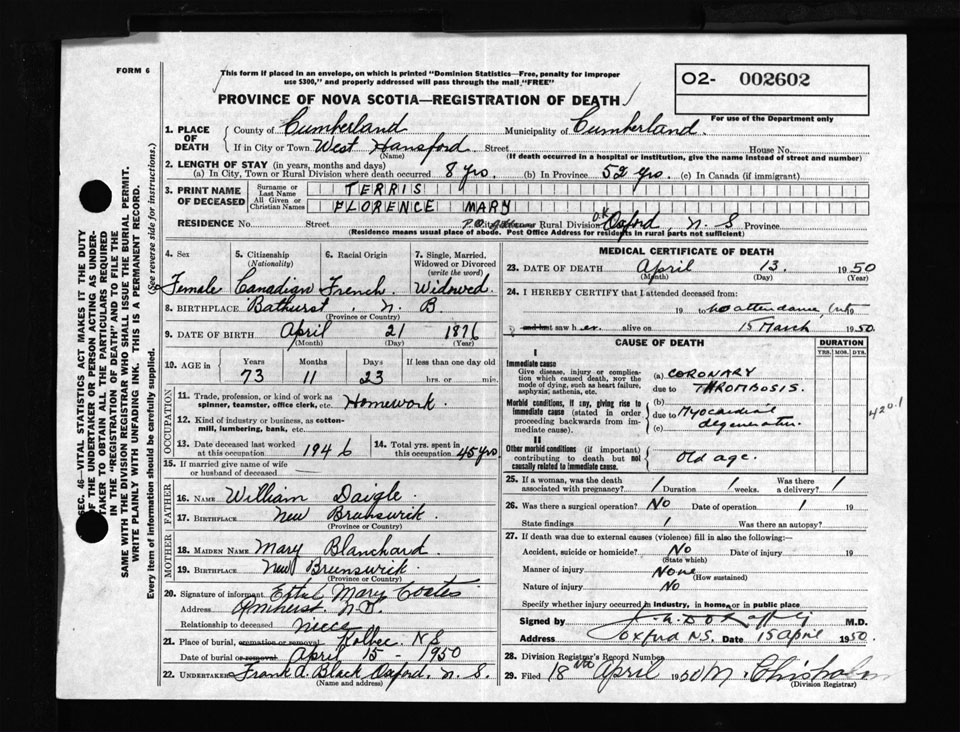 FORM 6
This form if placed in an envelope, on which is printed "Dominion Statistics—Free, penalty for improper
use $300," and properly addressed will pass through the mail "FREE"
O2- 002602
PROVINCE OF NOVA SCOTIA—REGISTRATION OF DEATH
For use of the Department only
SEC. 46—VITAL STATISTICS ACT MAKES IT THE DUTY
OF THE UNDERTAKER OR PERSON ACTING AS UNDER-
TAKER TO OBTAIN ALL THE PARTICULARS REQUIRED
IN THE "REGISTRATION OF DEATH" AND TO FILE THE
SAME WITH THE DIVISION REGISTRAR WHO SHALL ISSUE THE BURIAL PERMIT.
WRITE PLAINLY WITH UNFADING INK. THIS IS A PERMANENT RECORD.
Every item of information should be carefully supplied. (See reverse side for instructions.)
1. PLACE OF DEATH County of Cumberland Municipality of Cumberland.
If in City or Town West Hansford Street House No.
(Name) (If death occurred in a hospital or institution, give the name instead of street and number)
2. LENGTH OF STAY (in years, months and days)
(a) In City, Town or Rural Division where death occurred 8 yrs. (b) In Province 52 yrs. (c) In Canada (if immigrant)
3. PRINT NAME OF DECEASED Surname or Last Name TERRIS
All Given or Christian Names FLORENCE MARY
RESIDENCE No. Street P.O. City Rural Division O.K. Oxford N. S Province
(Residence means usual place of abode. Post Office Address for residents in rural parts not sufficient)
4. Sex 5. Citizenship (Nationality) 6. Racial Origin 7. Single, Married, Widowed or Divorced (write the word)
Female Canadian French. Widowed.
8. BIRTHPLACE Bathurst, N. B
(Province or Country)
9. DATE OF BIRTH April 21 1876
(Month) (Day) (Year)
10. AGE IN Years Months Days If less than one day old
73 11 23 hrs. or min.
OCCUPATION
11. Trade, profession, or kind of work as spinner, teamster, office clerk, etc. Homework.
12. Kind of industry or business, as cotton-mill, lumbering, bank, etc.
13. Date deceased last worked at this occupation 1946 14. Total yrs. spent in this occupation 45 yrs
15. If married give name of wife or husband of deceased
FATHER
16. NAME William Daigle.
17. BIRTHPLACE New Brunswick.
(Province or Country)
MOTHER
18. MAIDEN NAME Mary Blanchard.
19. BIRTHPLACE New Brunswick.
(Province or Country)
20. Signature of informant Mary Coates
Address Amherst. N.S.
Relationship to deceased niece
21. Place of burial, cremation or removal Kolbec N S
Date of burial or removal April 15 - 1950
22. UNDERTAKER Frank A. Black Oxford. N. S.
(Name and address)
MEDICAL CERTIFICATE OF DEATH
23. DATE OF DEATH April 13. 1950
(Month) (Day)
24. I HEREBY CERTIFY that I attended deceased from:
19 to no attendance
and last saw her. alive on 15 March 1950.
CAUSE OF DEATH DURATION
YRS. MOS. DYS.
I
Immediate cause
Give disease, injury or complication which caused death, NOT the mode of dying, such as heart failure, asphyxia, asthenia, etc.
(a) CORONARY
due to THROMBOSIS.
Morbid conditions, if any, giving rise to immediate cause (stated in order proceeding backwards from immediate cause).
(b)
due to Myocardial
(c) degeneration.
420.1
II
Other morbid conditions (if important) contributing to death but not causally related to immediate cause.
Old age.
25. If a woman, was the death associated with pregnancy? / Duration / weeks. Was there a delivery? /
26. Was there a surgical operation? No Date of operation / 19
State findings / Was there an autopsy?
27. If death was due to external causes (violence) fill in also the following:—
Accident, suicide or homicide? No Date of injury 19
(State which)
Manner of injury None
(How sustained)
Nature of injury No
Specify whether injury occurred in industry, in home, or in public place
Signed by M.D.
Address Oxford N.S. Date 15 April 1950.
28. Division Registrar's Record Number
29. Filed 18 April 1950 M. Chisholm
(Division Registrar)